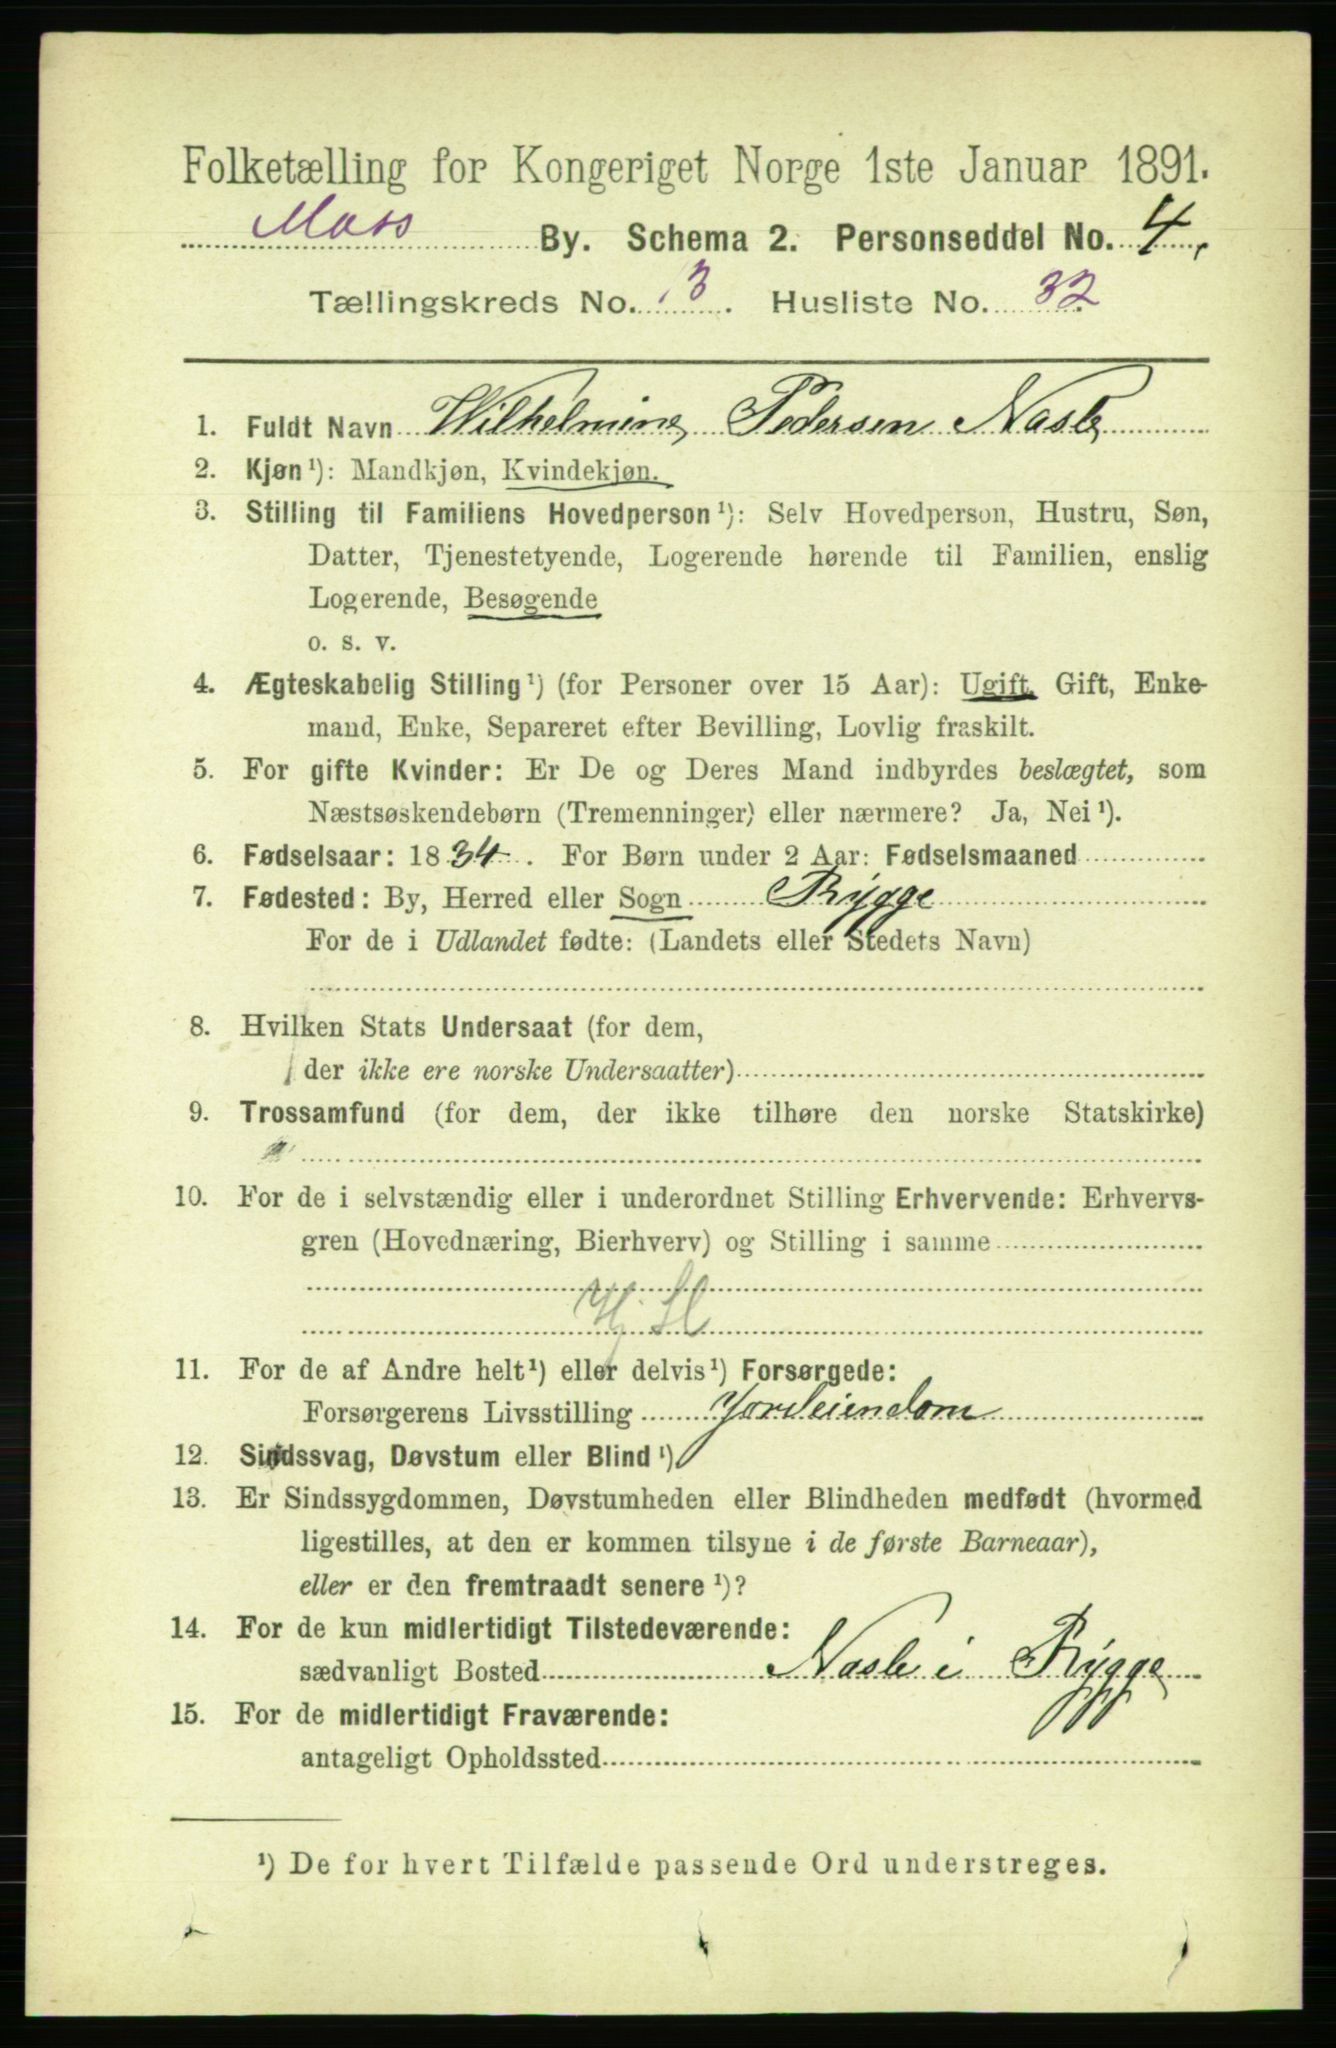 Folketælling for Kongeriget Norge 1ste Januar 1891.
Moss By. Schema 2. Personseddel No. 4,
Tællingskreds No. 13. Husliste No. 32
1. Fuldt Navn Wilhelmine Pedersen Nasle
2. Kjøn ¹): Mandkjøn, Kvindekjøn.
3. Stilling til Familiens Hovedperson ¹): Selv Hovedperson, Hustru, Søn,
Datter, Tjenestetyende, Logerende hørende til Familien, enslig
Logerende, Besøgende
o. s. v.
4. Ægteskabelig Stilling ¹) (for Personer over 15 Aar): Ugift, Gift, Enke-
mand, Enke, Separeret efter Bevilling, Lovlig fraskilt.
5. For gifte Kvinder: Er De og Deres Mand indbyrdes beslægtet, som
Næstsøskendebørn (Tremenninger) eller nærmere? Ja, Nei ¹).
6. Fødselsaar: 1834. For Børn under 2 Aar: Fødselsmaaned
7. Fødested: By, Herred eller Sogn Rygge
For de i Udlandet fødte: (Landets eller Stedets Navn)
8. Hvilken Stats Undersaat (for dem,
der ikke ere norske Undersaatter)
9. Trossamfund (for dem, der ikke tilhøre den norske Statskirke)
10. For de i selvstændig eller i underordnet Stilling Erhvervende: Erhvervs-
gren (Hovednæring, Bierhverv) og Stilling i samme
11. For de af Andre helt ¹) eller delvis ¹) Forsørgede:
Forsørgerens Livsstilling Jordeiendom
12. Sindssvag, Døvstum eller Blind ¹)
13. Er Sindssygdommen, Døvstumheden eller Blindheden medfødt (hvormed
ligestilles, at den er kommen tilsyne i de første Barneaar),
eller er den fremtraadt senere ¹)?
14. For de kun midlertidigt Tilstedeværende:
sædvanligt Bosted Nasle i Rygge
15. For de midlertidigt Fraværende:
antageligt Opholdssted
¹) De for hvert Tilfælde passende Ord understreges.